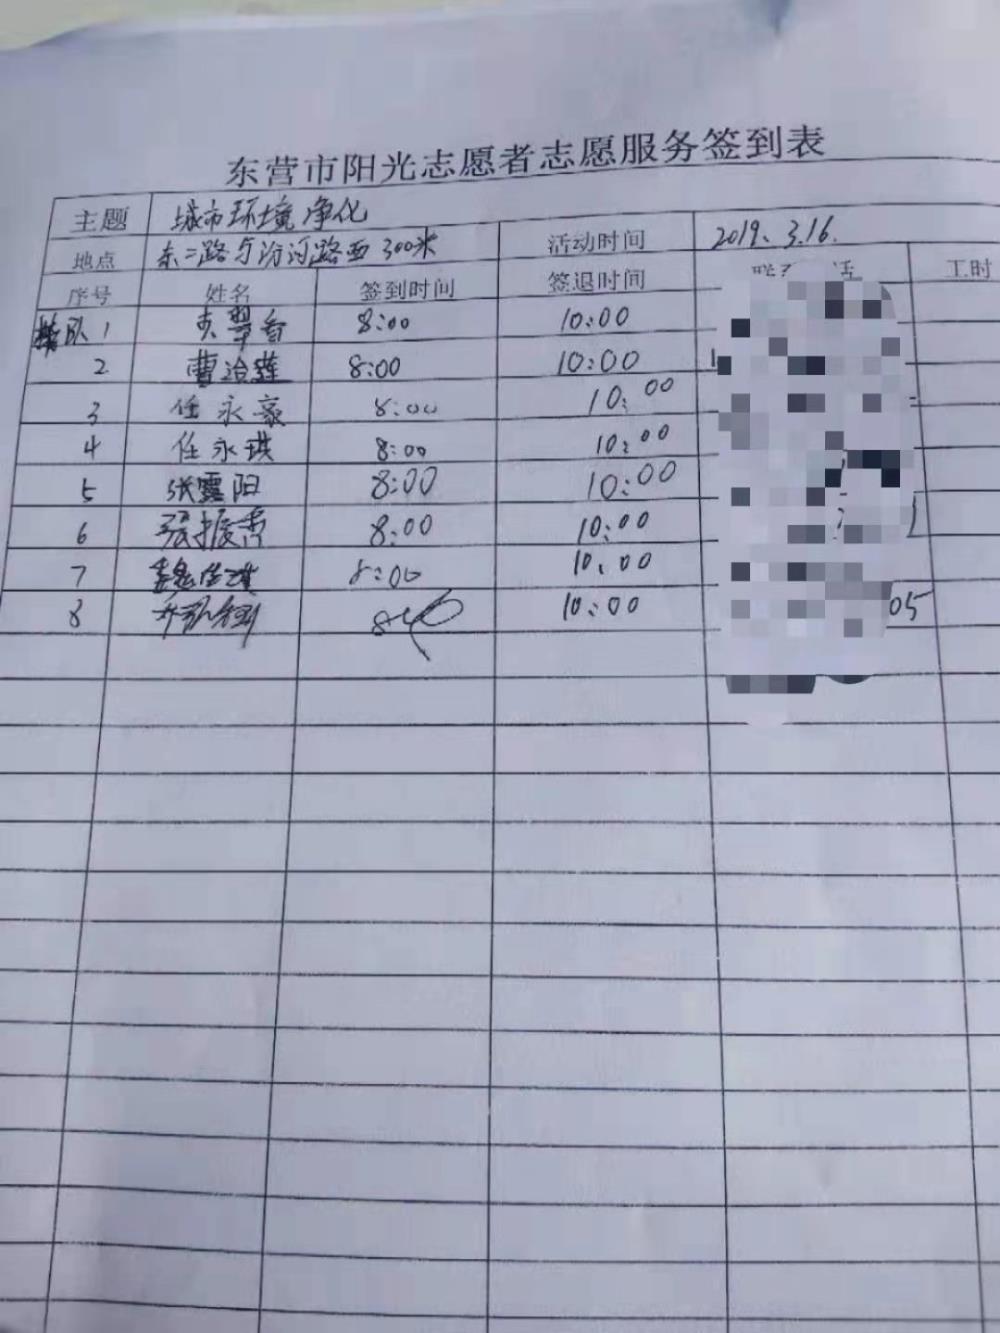 东营市阳光志愿者志愿服务签到表
主题 城市环境净化
地点 东二路与汾河路西300米 活动时间 2019.3.16.
序号 姓名 签到时间 签退时间 联 话 工时
队 1 翠香 8:00 10:00
2 曹治莲 8:00 10:00
3 任永豪 8:00 10:00
4 任永琪 8:00 10:00
5 张露阳 8:00 10:00
6 张振香 8:00 10:00
7 8:00 10:00
8 10:00 05